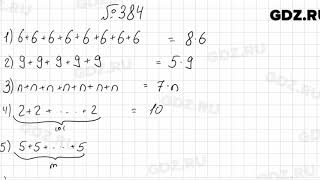 GDZ.RU
№384
1) 6+6+6+6+6+6+6+6 = 8·6
2) 9+9+9+9+9 = 5·9
3) n+n+n+n+n+n+n = 7·n
4) 2+2+ ... +2 = 10
5) 5+5+ ... +5
m